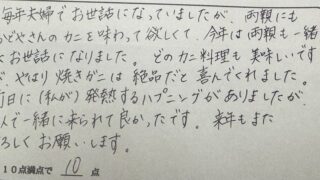 毎年夫婦でお世話になっていましたが、両親にも
かどやさんのカニを味わって欲しくて、今年は両親も一緒
にお世話になりました。どのカニ料理も美味しいです
が、やはり焼きガニは絶品だと喜んでくれました。
前日に(私が)発熱するハプニングがありましたが、
一緒に来られて良かったです。来年もまた
よろしくお願いします。
10点満点で 10 点